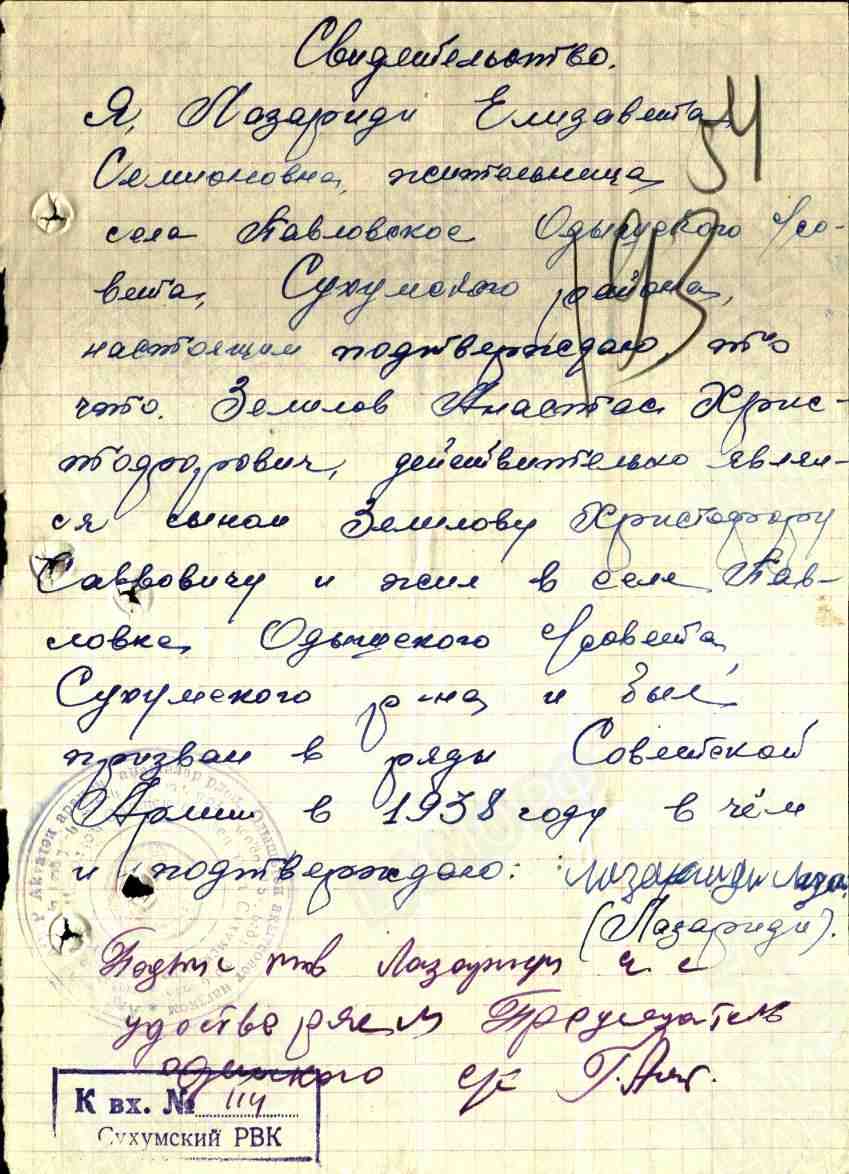 Свидетельство.
Я, Лазариди Елизавета
54
Семионовна, жительница
села Павловское Одышского с/со-
193
вета, Сухумского района,
настоящим подтверждаю, то
что. Земилов Анастас Хрис-
тофорович, действительно являл-
ся сыном Земилову Христофору
Саввовичу и жил в селе Пав-
ловка, Одышского с/совета,
Сухумского р-на и был
призван в ряды Советской
Армии в 1938 году в чём
и подтверждаю: Лазариди
(Лазариди).
Подпис тов Лазариди
удостверяем Председатель
Одишского с/с
К вх. № 114
Сухумский РВК